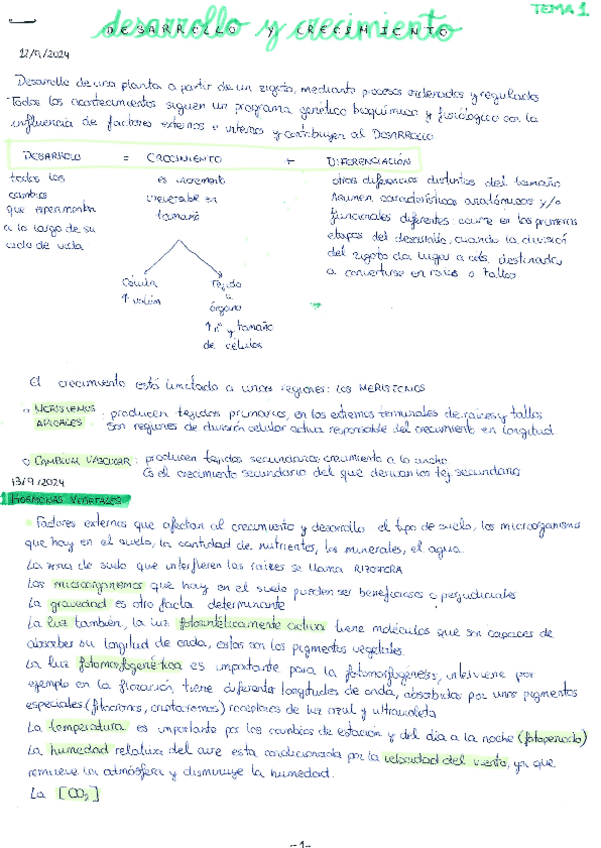 TEMA 1
desarrollo y crecimiento
DESARROLLO Y CRECIMIENTO
12/9/2024
Desarrollo de una planta a partir de un zigoto, mediante procesos ordenados y regulados
Todos los acontecimientos siguen un programa genético bioquímico y fisiológico con la
influencia de factores externos e internos y contribuyen al DESARROLLO
DESARROLLO = CRECIMIENTO + DIFERENCIACIÓN
todos los
cambios
que experimenta
a lo largo de su
ciclo de vida
es incremento
irreversible en
tamaño
otras diferencias distintas del tamaño
Asumen características anatómicas y/o
funcionales diferentes: ocurre en las primeras
etapas del desarrollo, cuando la división
del zigoto da lugar a céls. destinadas
a convertirse en raíces o tallos
Célula
↑ volúm
Tejido
u
órgano
↑ nº y tamaño
de células
El crecimiento está limitado a unas regiones: LOS MERISTEMOS
MERISTEMOS APICALES: producen tejidos primarios, en los extremos terminales de raíces y tallos
son regiones de división celular activa responsable del crecimiento en longitud.
CAMBIUM VASCULAR: producen tejidos secundarios, crecimiento a lo ancho
Es el crecimiento secundario del que derivan los tej. secundarios
13/9/2024
1 HORMONAS VEGETALES
Factores externos que afectan al crecimiento y desarrollo el tipo de suelo, los microorganismos
que hay en el suelo, la cantidad de nutrientes, los minerales, el agua.
La zona de suelo que interfieren las raíces se llama RIZOSFERA
Los microorganismos que hay en el suelo pueden ser beneficiosos o perjudiciales
La gravedad es otro factor determinante
La luz también, la luz fotosintéticamente activa tiene moléculas que son capaces de
absorber su longitud de onda, estas son los pigmentos vegetales.
La luz fotomorfogenética es importante para la fotomorfogénesis, interviene por
ejemplo en la floración, tiene diferentes longitudes de onda, absorbidas por unos pigmentos
especiales (fitocromos, criptocromos) receptores de luz azul y ultravioleta
La temperatura es importante por los cambios de estación y del día a la noche (fotoperiodo)
La humedad relativa del aire esta condicionada por la velocidad del viento, ya que
remueve la atmósfera y disminuye la humedad.
La [CO₂]
-1-